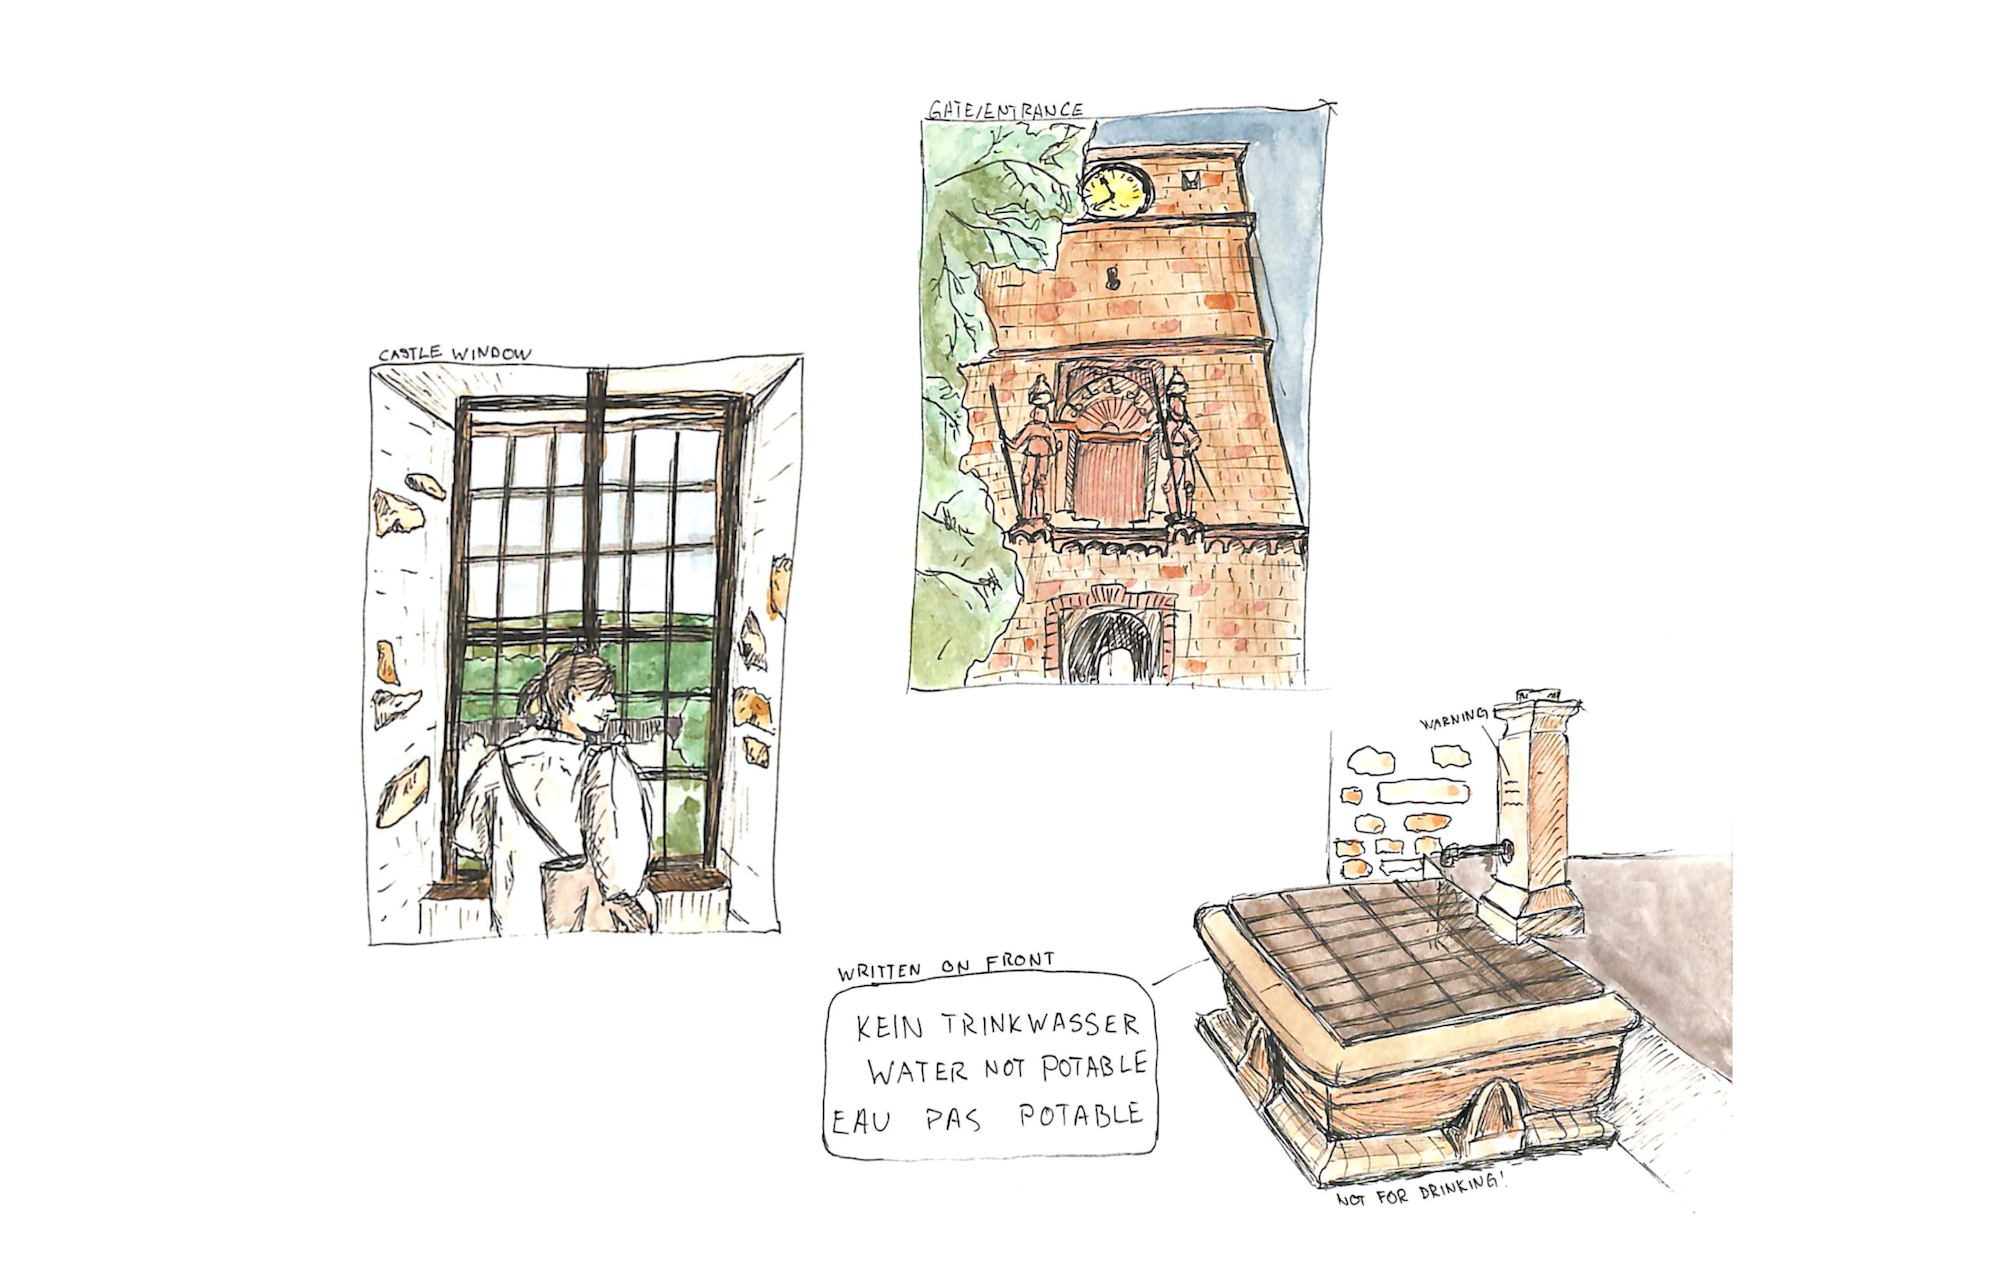 GATE/ENTRANCE
CASTLE WINDOW
WARNING
WRITTEN ON FRONT
KEIN TRINKWASSER
WATER NOT POTABLE
EAU PAS POTABLE
NOT FOR DRINKING!